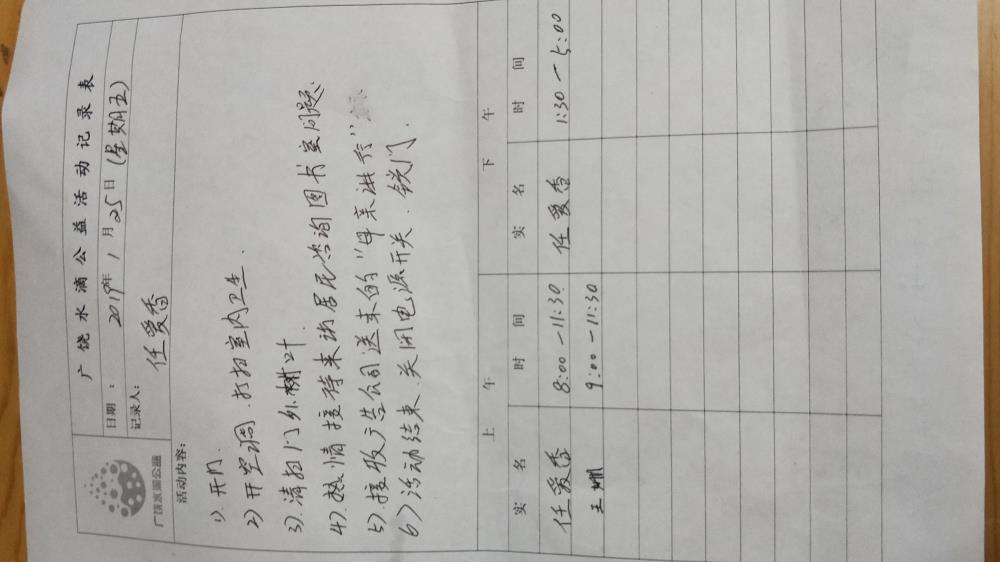 广饶水滴公益活动记录表
广饶水滴公益
日期: 2019年 1月 25日 (星期五)
记录人:
任爱香
活动内容:
1) 开门.
2) 开空调.打扫室内卫生.
3) 清扫门外树叶
4) 热情接待来访居民咨询图书室问题.
5) 接收广告公司送来的"母亲
6) 活动结束.关闭电源开关.锁门.
上 午 下 午
实 名 时 间 实 名 时 间
任爱香 8:00-11:30 任爱香 1:30-5:00
王姗 9:00-11:30